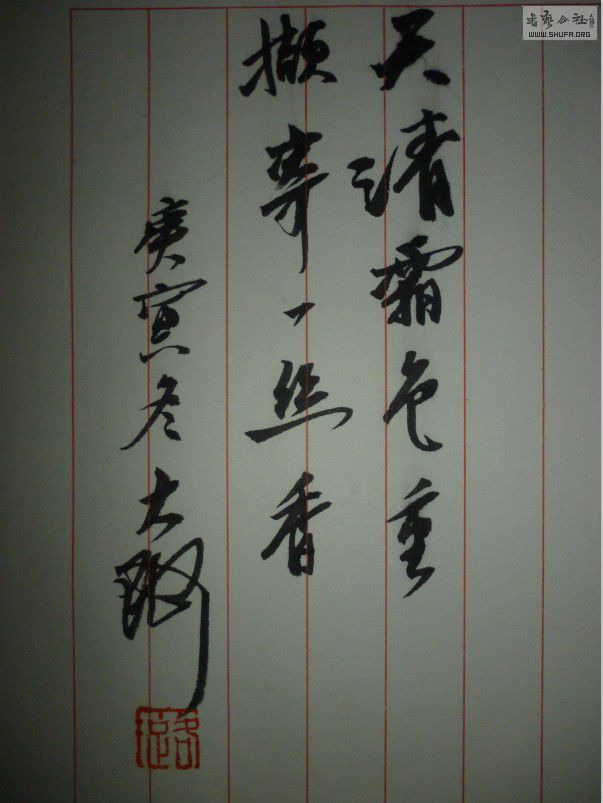 天清霜色重
撷寄一丝香
庚寅冬大
书艺公社
WWW.SHUFA.ORG